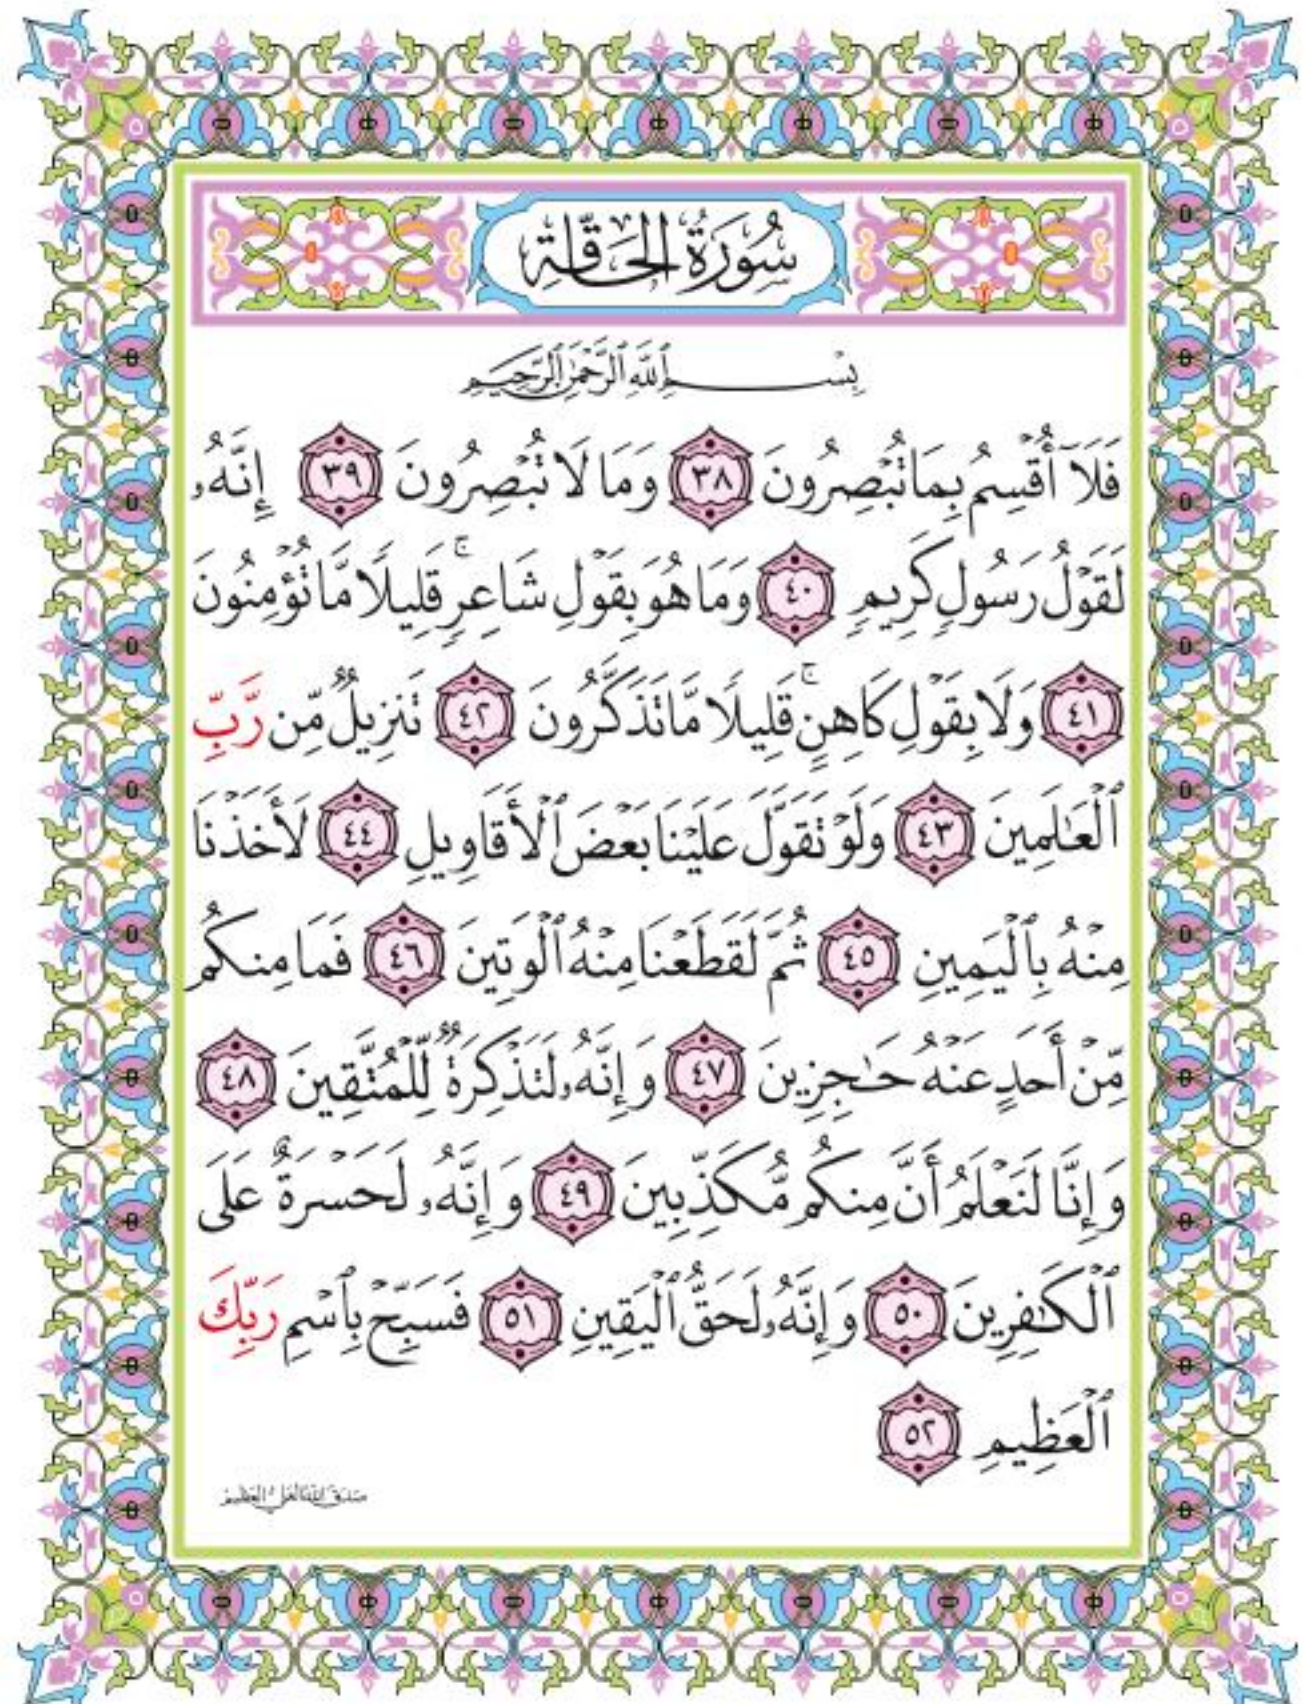 سُورَةُ الحَاقَّةِ
بِسْمِ ٱللَّهِ ٱلرَّحْمَٰنِ ٱلرَّحِيمِ
فَلَآ أُقْسِمُ بِمَا تُبْصِرُونَ ٣٨ وَمَا لَا تُبْصِرُونَ ٣٩ إِنَّهُۥ
لَقَوْلُ رَسُولٍ كَرِيمٍ ٤٠ وَمَا هُوَ بِقَوْلِ شَاعِرٍ ۚ قَلِيلًا مَّا تُؤْمِنُونَ
٤١ وَلَا بِقَوْلِ كَاهِنٍ ۚ قَلِيلًا مَّا تَذَكَّرُونَ ٤٢ تَنزِيلٌ مِّن رَّبِّ
ٱلْعَٰلَمِينَ ٤٣ وَلَوْ تَقَوَّلَ عَلَيْنَا بَعْضَ ٱلْأَقَاوِيلِ ٤٤ لَأَخَذْنَا
مِنْهُ بِٱلْيَمِينِ ٤٥ ثُمَّ لَقَطَعْنَا مِنْهُ ٱلْوَتِينَ ٤٦ فَمَا مِنكُم
مِّنْ أَحَدٍ عَنْهُ حَٰجِزِينَ ٤٧ وَإِنَّهُۥ لَتَذْكِرَةٌ لِّلْمُتَّقِينَ ٤٨
وَإِنَّا لَنَعْلَمُ أَنَّ مِنكُم مُّكَذِّبِينَ ٤٩ وَإِنَّهُۥ لَحَسْرَةٌ عَلَى
ٱلْكَٰفِرِينَ ٥٠ وَإِنَّهُۥ لَحَقُّ ٱلْيَقِينِ ٥١ فَسَبِّحْ بِٱسْمِ رَبِّكَ
ٱلْعَظِيمِ ٥٢
صدق الله العلي العظيم